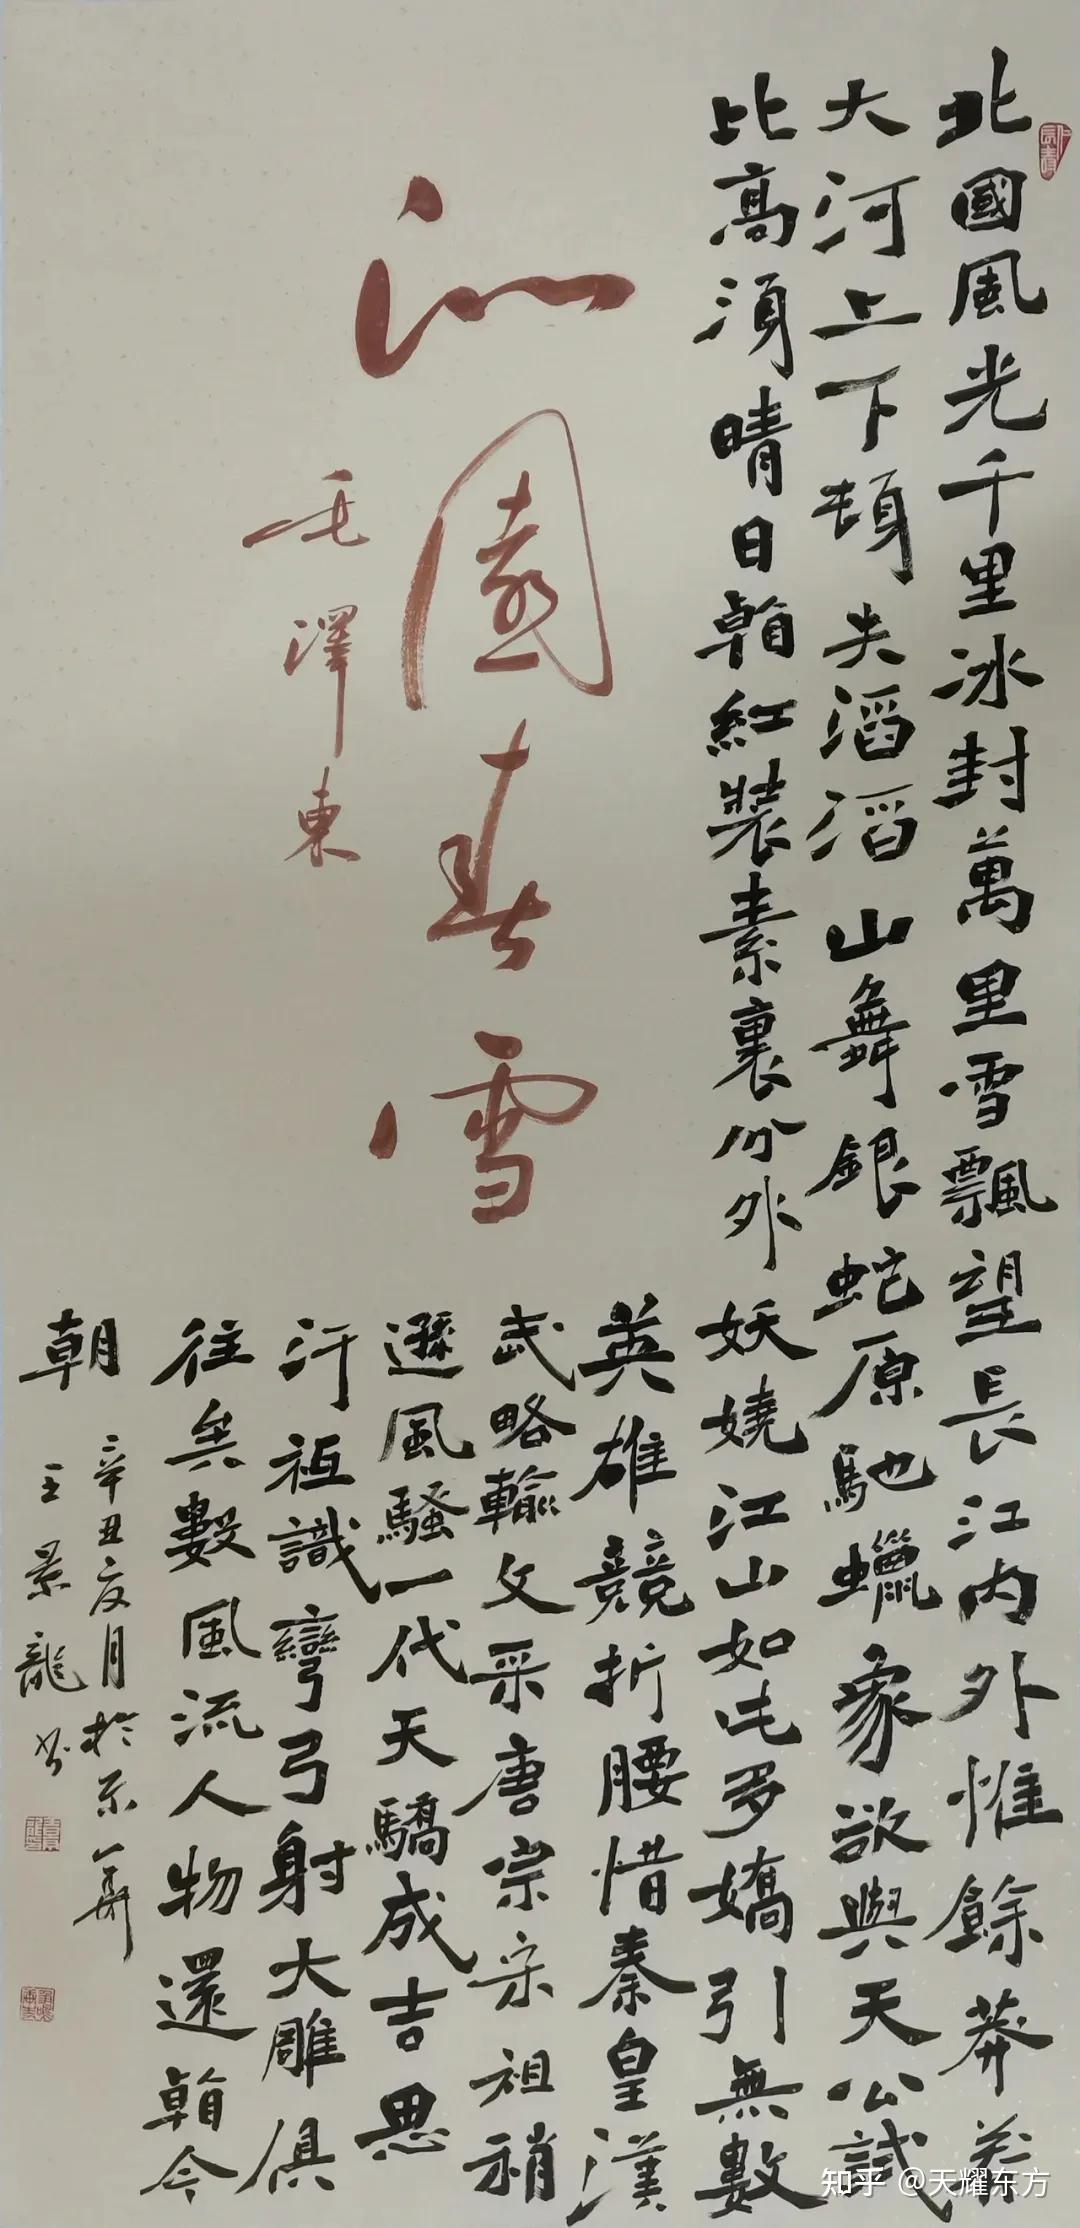 北國風光千里冰封萬里雪飄望長江内外惟餘莽莽
大河上下頓失滔滔山舞銀蛇原馳蠟象欲與天公試
比高須晴日看紅裝素裹分外妖嬈江山如此多嬌引無數
沁園春雪
毛澤東
英雄競折腰惜秦皇漢
武略輸文采唐宗宋祖稍
遜風騷一代天驕成吉思
汗祗識彎弓射大雕俱
往矣數風流人物還看今
朝
辛丑夏月於京華
王景龍书
知乎 @天耀东方